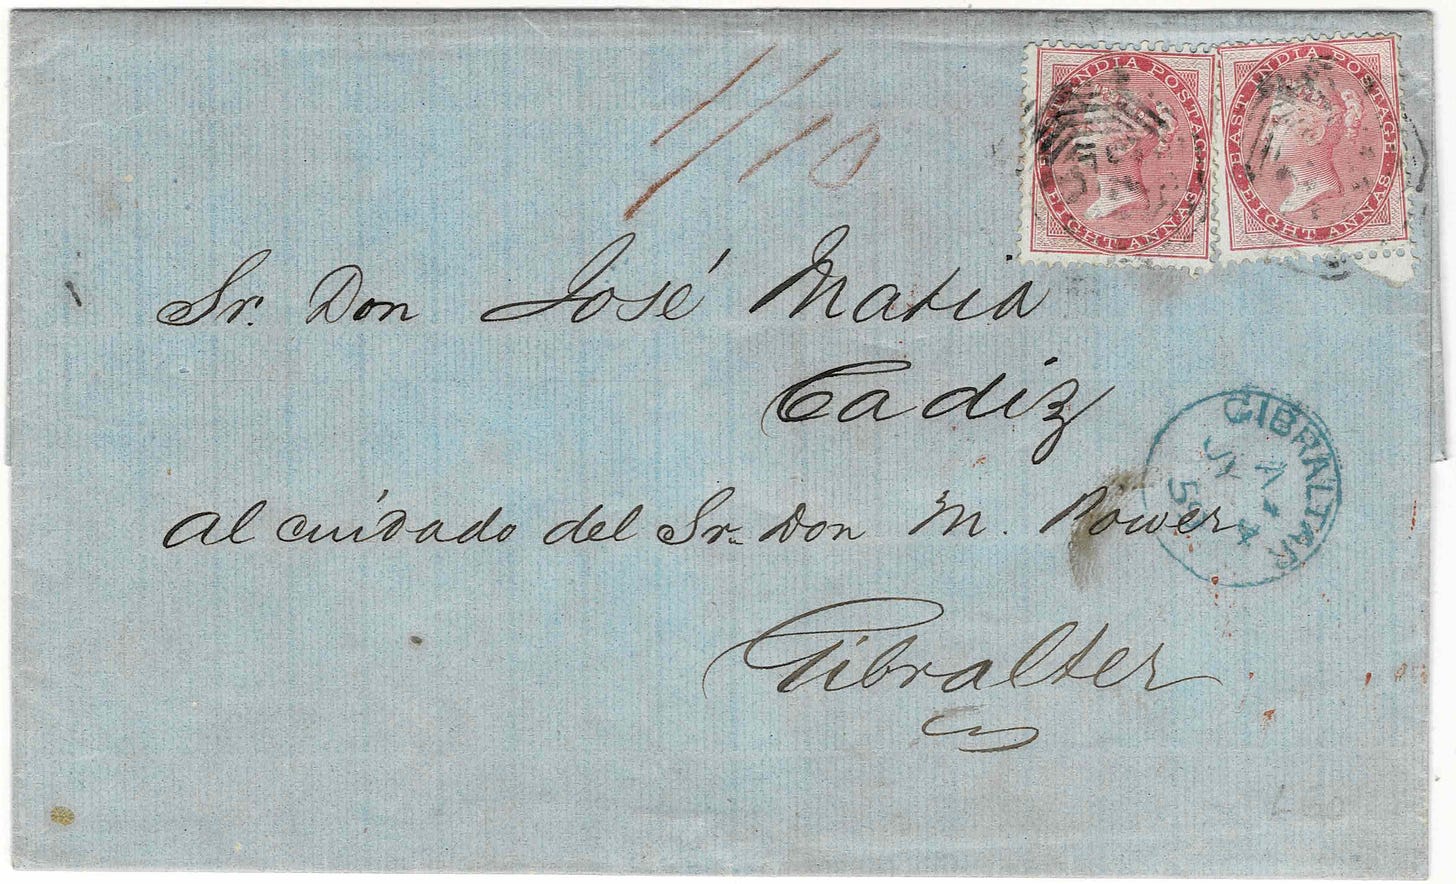 1/10
INDIA POSTAGE
EIGHT ANNAS
EAST INDIA POSTAGE
EIGHT ANNAS
Sr. Don José Matia
Cadiz
al cuidado del Sr. Don M. Power
Gibralter
GIBRALTAR
A
JY 14